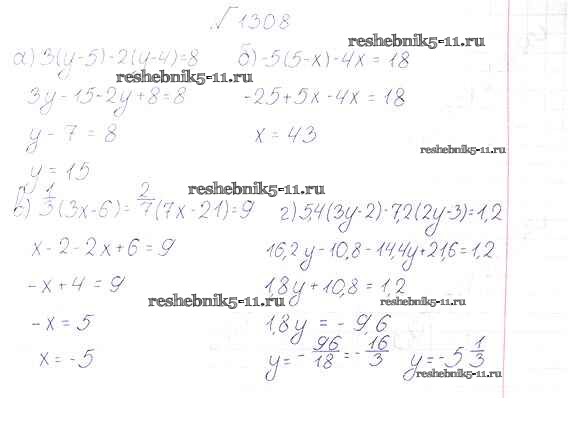 № 1308
reshebnik5-11.ru
а) 3(y-5)-2(y-4)=8 б) -5(5-x)-4x = 18
reshebnik5-11.ru
3y-15-2y+8=8 -25+5x-4x = 18
y-7 = 8 x = 43
reshebnik5-11.ru
y = 15
reshebnik5-11.ru
в) 1/3 (3x-6) = 2/7 (7x-21) = 9 г) 5,4(3y-2)-7,2(2y-3)=1,2
x-2-2x+6 = 9 16,2y-10,8-14,4y+21,6=1,2
-x+4 = 9 1,8y+10,8=1,2
reshebnik5-11.ru reshebnik5-11.ru
-x = 5 1,8y = -9,6
x = -5 y = - 96/18 = - 16/3 y = -5 1/3
reshebnik5-11.ru